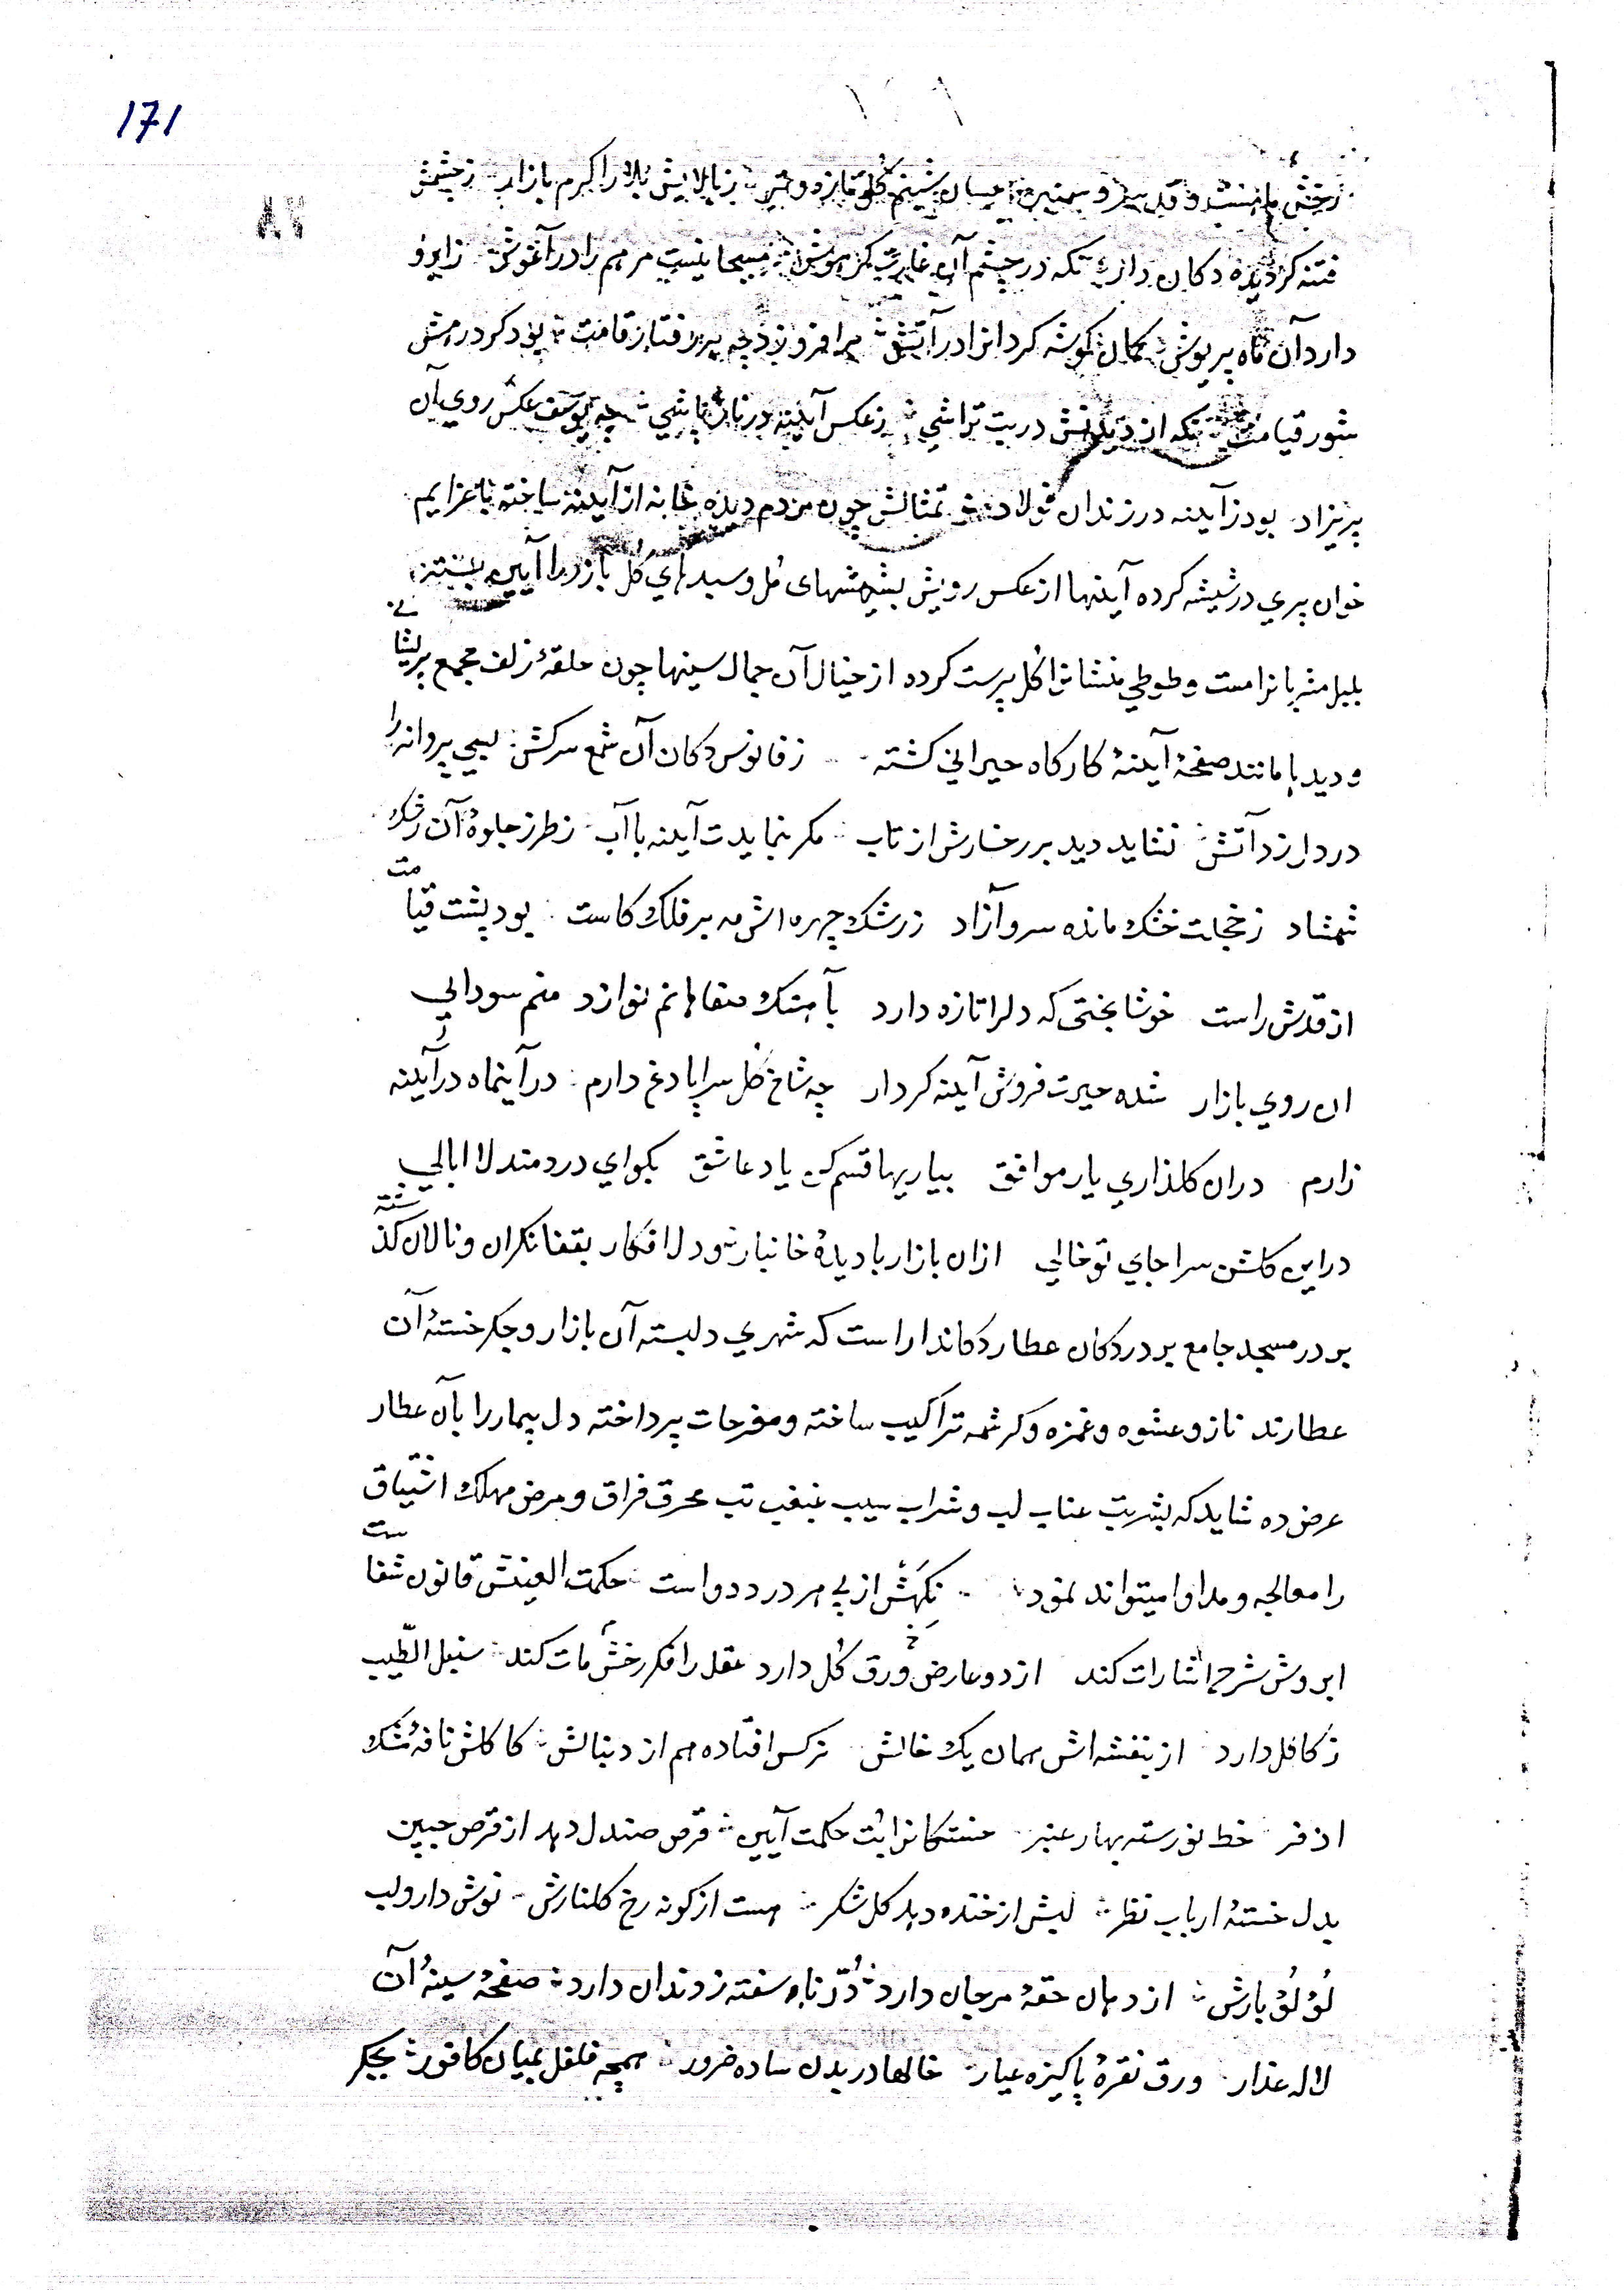 171
۸۲
رخش ماهست و قد سرو سمنبر بسان شبنم گل تازه و تر ز بالایش بلا را کرم بازار ز چشمش
فتنه کردیده دکان دار نکه در چشم آن غارت کر هوش مسیحا نیست مرهم را در آغوش ز ابرو
دارد آن ماه پریوش کمان کوشه کردانرا در آتش برافروزد چه بر رفتار قامت بود کرد رهش
شور قیامت نکه از دیدنش در بت تراشی ز عکس آینه در پاشی چه یوسف عکس روی آن
پریزاد بود ز آینه در زندان فولاد تمثالش چون مردم دیده خانه از آینه ساخته با عزایم
خوان پری در شیشه کرده آینها از عکس رویش بشیشهای مل و سبدهای گل بازار را آیین بستند
بلبل مشربانرا مست و طوطی منشانرا گل پرست کرده از خیال آن جمال سینها چون حلقهٔ زلف مجمع پریشانی
و دیدها مانند صفحهٔ آینهٔ کارکاه حیرانی کشته ز فانوس دکان آن شمع سرکش بسی پروانه را
در دل زد آتش نشاید دید بر رخسارش از تاب مکر بنمایدت آینه با آب ز طرز جلوهٔ آن رشک
شمشاد ز خجلت خشک مانده سرو آزاد ز رشک چهره اش مه بر فلک کاست بود پشت قیامت
از قدش راست خوشا بختی که دلرا تازه دارد بآهنک صفاهانم نوازد منم سودایی
ان روی بازار شده حیرت فروش آینه کردار چه شاخ گل سراپا دغ دارم در آینماه در آینه
زارم دران کلذاری یار موافق بیاریها قسم کن یاد عاشق بکو ای دردمند لاابالی
دراین کلشن سرا جای تو خالی ازان بازار با دیدهٔ خانبار و دل افکار بقفا نکران و نالان کذشته
بر در مسجد جامع بر در دکان عطار دکاندار است که شهری دلبسته آن بازار و جکر خستهٔ آن
عطارند ناز و عشوه و غمزه و کرشمه تراکیب ساخته و مفرحات پرداخته دل بیمار را بآن عطار
عرض ده شاید که بشربت عناب لب و شراب سیب غبغب تب محرق فراق و مرض مهلک اشتیاق
را معالجه و مداوا میتواند نمود نکهش از پی هر درد دواست حکمت العینش قانون شفاست
ابروش شرح اشارات کند از دو عارض دو ورق گل دارد عقل را فکر رخش مات کند سنبل الطّیب
ز کاکل دارد از بنفشه اش همان یک خالش نرکس افتاده هم از دنبالش کاکلش نافهٔ مشک
اذفر خط نورسته بهار عنبر خستکانرا بت حکمت آیین قرص صندل دهد از قرص جبین
بدل خستهٔ ارباب نظر لبش از خنده دهد کل شکر هست از کونه رخ کلنارش نوش دارو لب
لؤلؤ بارش از دهان حقهٔ مرجان دارد دُرّ ناسفته ز دندان دارد صفحهٔ سینهٔ آن
لاله عذار ورق نقرهٔ پاکیزه عیار خالها در بدن ساده ضرور همچه فلفل بمیان کافور بجکر